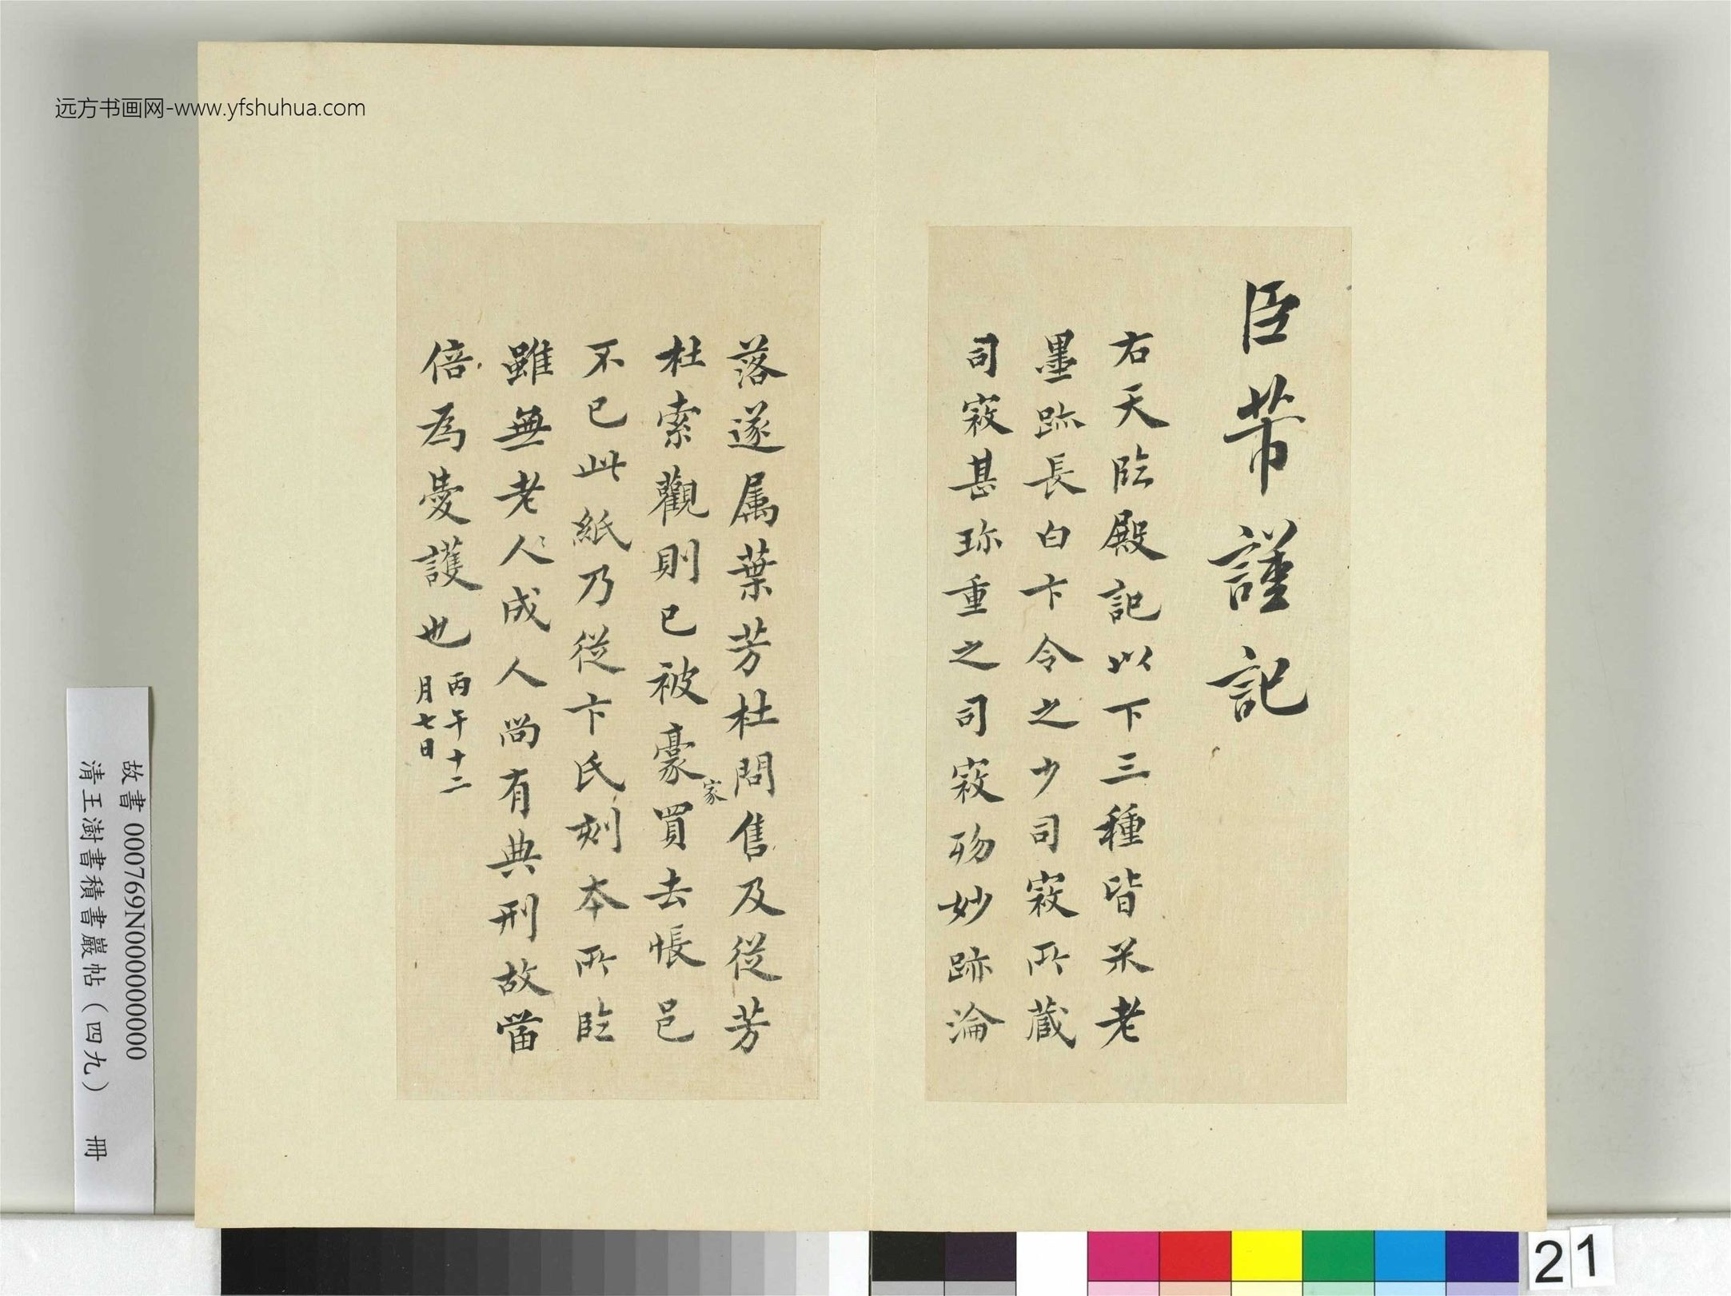 远方书画网-www.yfshuhua.com
臣芾謹記
右天臨殿記以下三種皆米老
墨跡長白卞令之少司寇所藏
司寇甚珎重之司寇歾妙跡淪
落遂属葉芳杜問售及從芳
杜索觀則已被豪家買去悵邑
不已此紙乃從卞氏刻本所臨
雖無老人人成人尚有典刑故當
倍為愛護也
丙午十二
月七日
故書 000769N000000000
清王澍書積書巖帖（四九） 冊
21